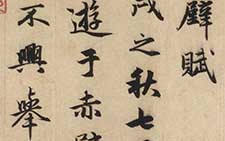 壁賦
戌之秋七
遊于赤壁
不興舉